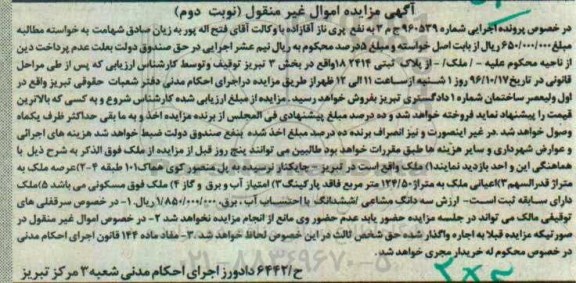 آگهی مزایده اموال غیر منقول (نوبت دوم)
در خصوص پرونده اجرایی شماره ۹۶۰۵۳۹ ج م ۳ به نفع پری ناز آقازاده با وکالت آقای فتح اله پور به زیان صادق شهامت به خواسته مطالبه
مبلغ ۶۵۰/۰۰۰/۰۰۰ ریال از بابت اصل خواسته و مبلغ ۵ درصد محکوم به ریال نیم عشر اجرایی در حق صندوق دولت بعلت عدم پرداخت دین
از ناحیه محکوم علیه - / ملک / - از پلاک ثبتی ۲۴۱۴ ۱۸ واقع در بخش ۳ تبریز توقیف و توسط کارشناس ارزیابی که پس از طی مراحل
قانونی در تاریخ ۹۶/۱۰/۱۷ روز ۱ شنبه از ساعت ۱۱ الی ۱۲ ظهر از طریق مزایده در اجرای احکام مدنی دفتر شعبات حقوقی تبریز واقع در
اول ولیعصر ساختمان شماره ۱ دادگستری تبریز بفروش خواهد رسید. مزایده از مبلغ ارزیابی شده کارشناس شروع و به کسی که بالاترین
قیمت را پیشنهاد نماید فروخته خواهد شد و ده درصد مبلغ پیشنهادی فی المجلس از برنده مزایده اخذ و به ما بقی حداکثر ظرف یکماه
وصول خواهد شد. در غیر اینصورت و نیز انصراف برنده ده درصد مبلغ اخذ شده بنفع صندوق دولت ضبط خواهد شد هزینه های اجرائی
و عوارض شهرداری و سایر هزینه ها طبق مقررات خواهد بود طالبین می توانند پنج روز قبل از مزایده از ملک فوق الذکر به شرح ذیل با
هماهنگی این واحد بازدید نمایند ۱) ملک واقع است در تبریز - چایکنار نرسیده به پل منصور کوی هماک ۱۰۱ طبقه ۴-۲) عرصه ملک به
متراژ قدرالسهم ۳) اعیانی ملک به متراژ ۱۲۴/۵۰ متر مربع فاقد پارکینگ ۳) امتیاز آب و برق و گاز ۴) ملک فوق مسکونی می باشد ۵) ملک
دارای سابقه ثبت است- ارزش سه دانگ مشاعی / ششدانگ با احتساب آب، برق، ۱/۸۵۰/۰۰۰/۰۰۰ ریال. ۱- در خصوص سرقفلی های
توقیفی مالک می تواند در جلسه مزایده حضور یابد عدم حضور وی مانع از انجام مزایده نخواهد شد ۲- در خصوص اموال غیر منقول در
صورتیکه مزایده قبلا به اجاره واگذار شده حق شخص ثالث در این خصوص لحاظ خواهد شد. ۳- مفاد ماده ۱۴۴ قانون اجرای احکام مدنی
در خصوص محکوم له خریدار مجری خواهد شد.
ح/۶۴۴۲ دادورز اجرای احکام مدنی شعبه ۳ مرکز تبریز
۰۲۱-۸۸۳۴۹۶۷۰-۵